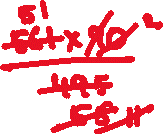 51
561 x 90 2
495
55 11